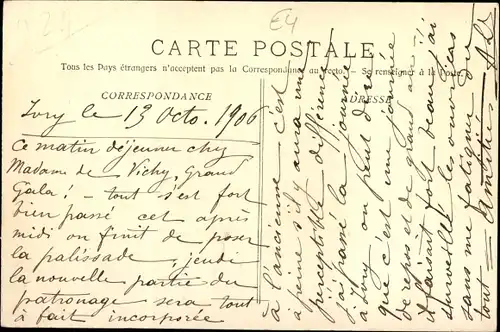 E4
CARTE POSTALE
Tous les Pays étrangers n'acceptent pas la Correspondance au recto. - Se renseigner à la Poste
CORRESPONDANCE
ADRESSE
Ivry le 13 Octo. 1906
Ce matin déjeuner chez
Madame de Vichy, Grand
Gala! - tout s'est fort
bien passé cet après
midi on finit de poser
la palissade, jeudi
la nouvelle partie du
patronage sera tout
à fait incorporée
à l'ancienne c'est
à peine s'il y aura une
perceptible différence
j'ai passé la journée
à Ivry on peut dire
que c'est une journée
de repos et de grand air!
il faisait fort beau j'ai
surveillé les ouvriers
sans me fatiguer du
tout - Amitiés